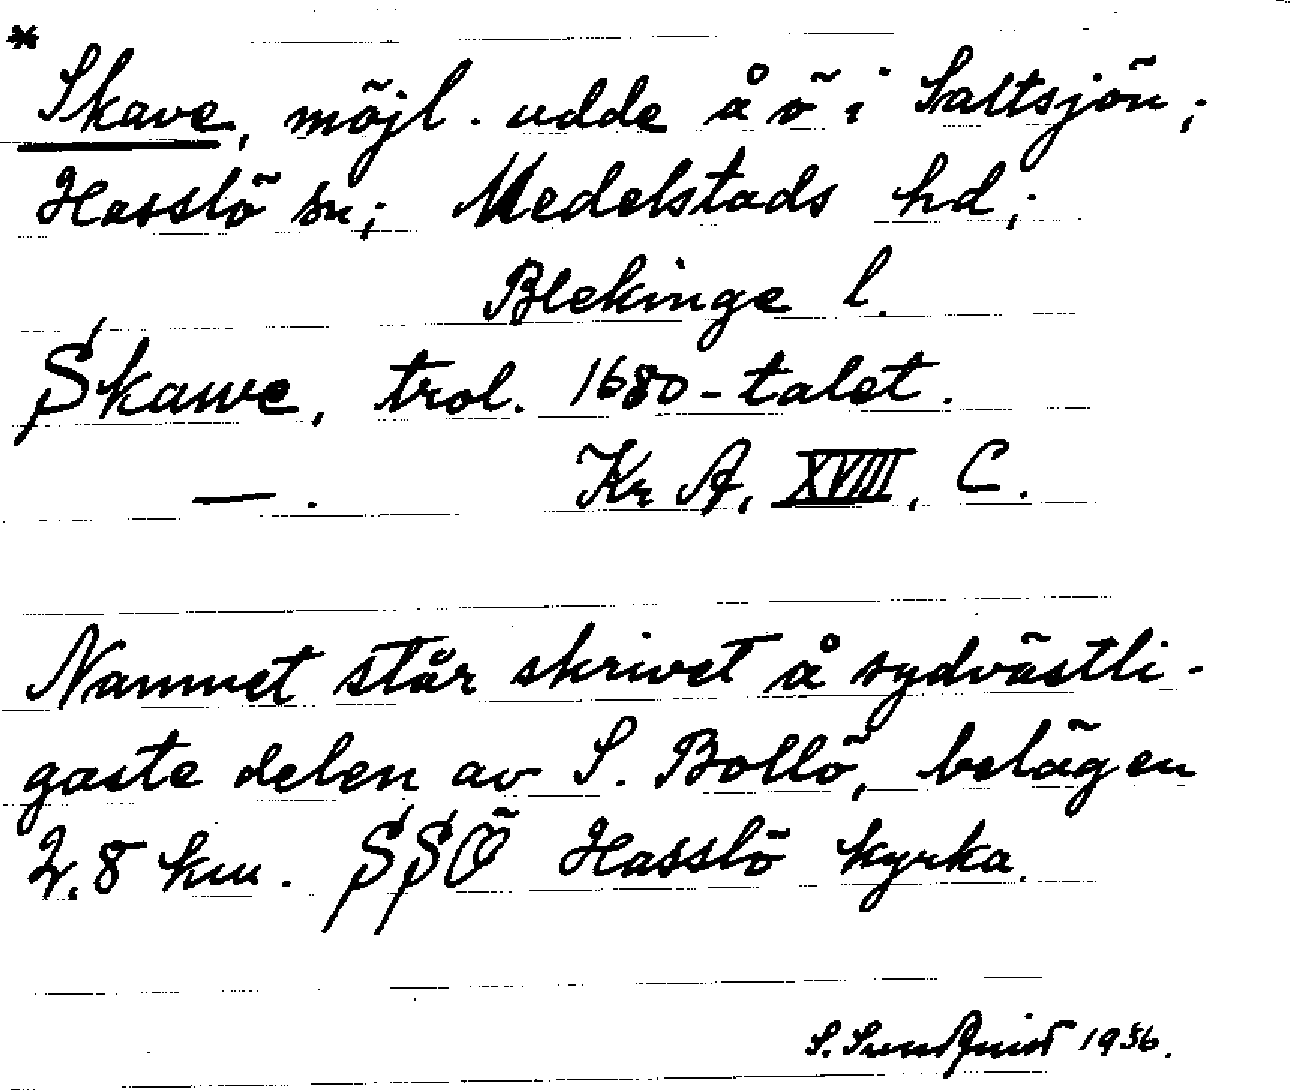 *
Skave, möjl. udde å ö i Saltsjön;
Hasslö sn; Medelstads hd;
Blekinge l.
Skawe, trol. 1680-talet.
— . Kr A, XVIII, C.
Namnet står skrivet å sydvästli-
gaste delen av S. Bollö, belägen
2.8 km. SSÖ Hasslö kyrka.
S. Sundquist 1936.